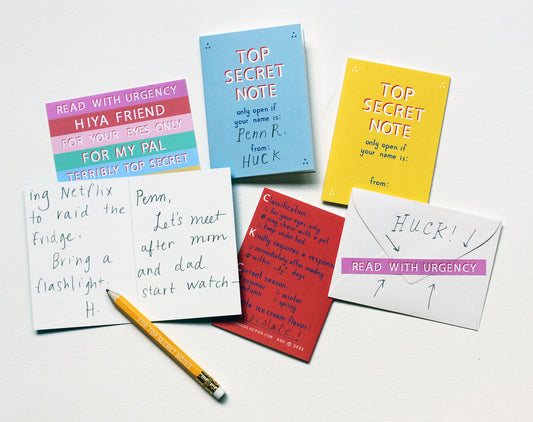 READ WITH URGENCY
HIYA FRIEND
FOR YOUR EYES ONLY
FOR MY PAL
TERRIBLY TOP SECRET
TOP
SECRET
NOTE
only open if
your name is:
Penn R.
from:
HUCK
TOP
SECRET
NOTE
only open if
your name is:
from:
ing Netflix
to raid the
fridge.
Bring a
flashlight.
H.
Penn,
Let's meet
after mom
and dad
start watch-
Classification:
for your eyes only
may share with a pal
keep under bed
Kindly requires a response:
immediately after reading
within days
Current season:
summer winter
autumn spring
ice cream flavor:
chocolate!
HUCK!
READ WITH URGENCY
TOP SECRET NOTES